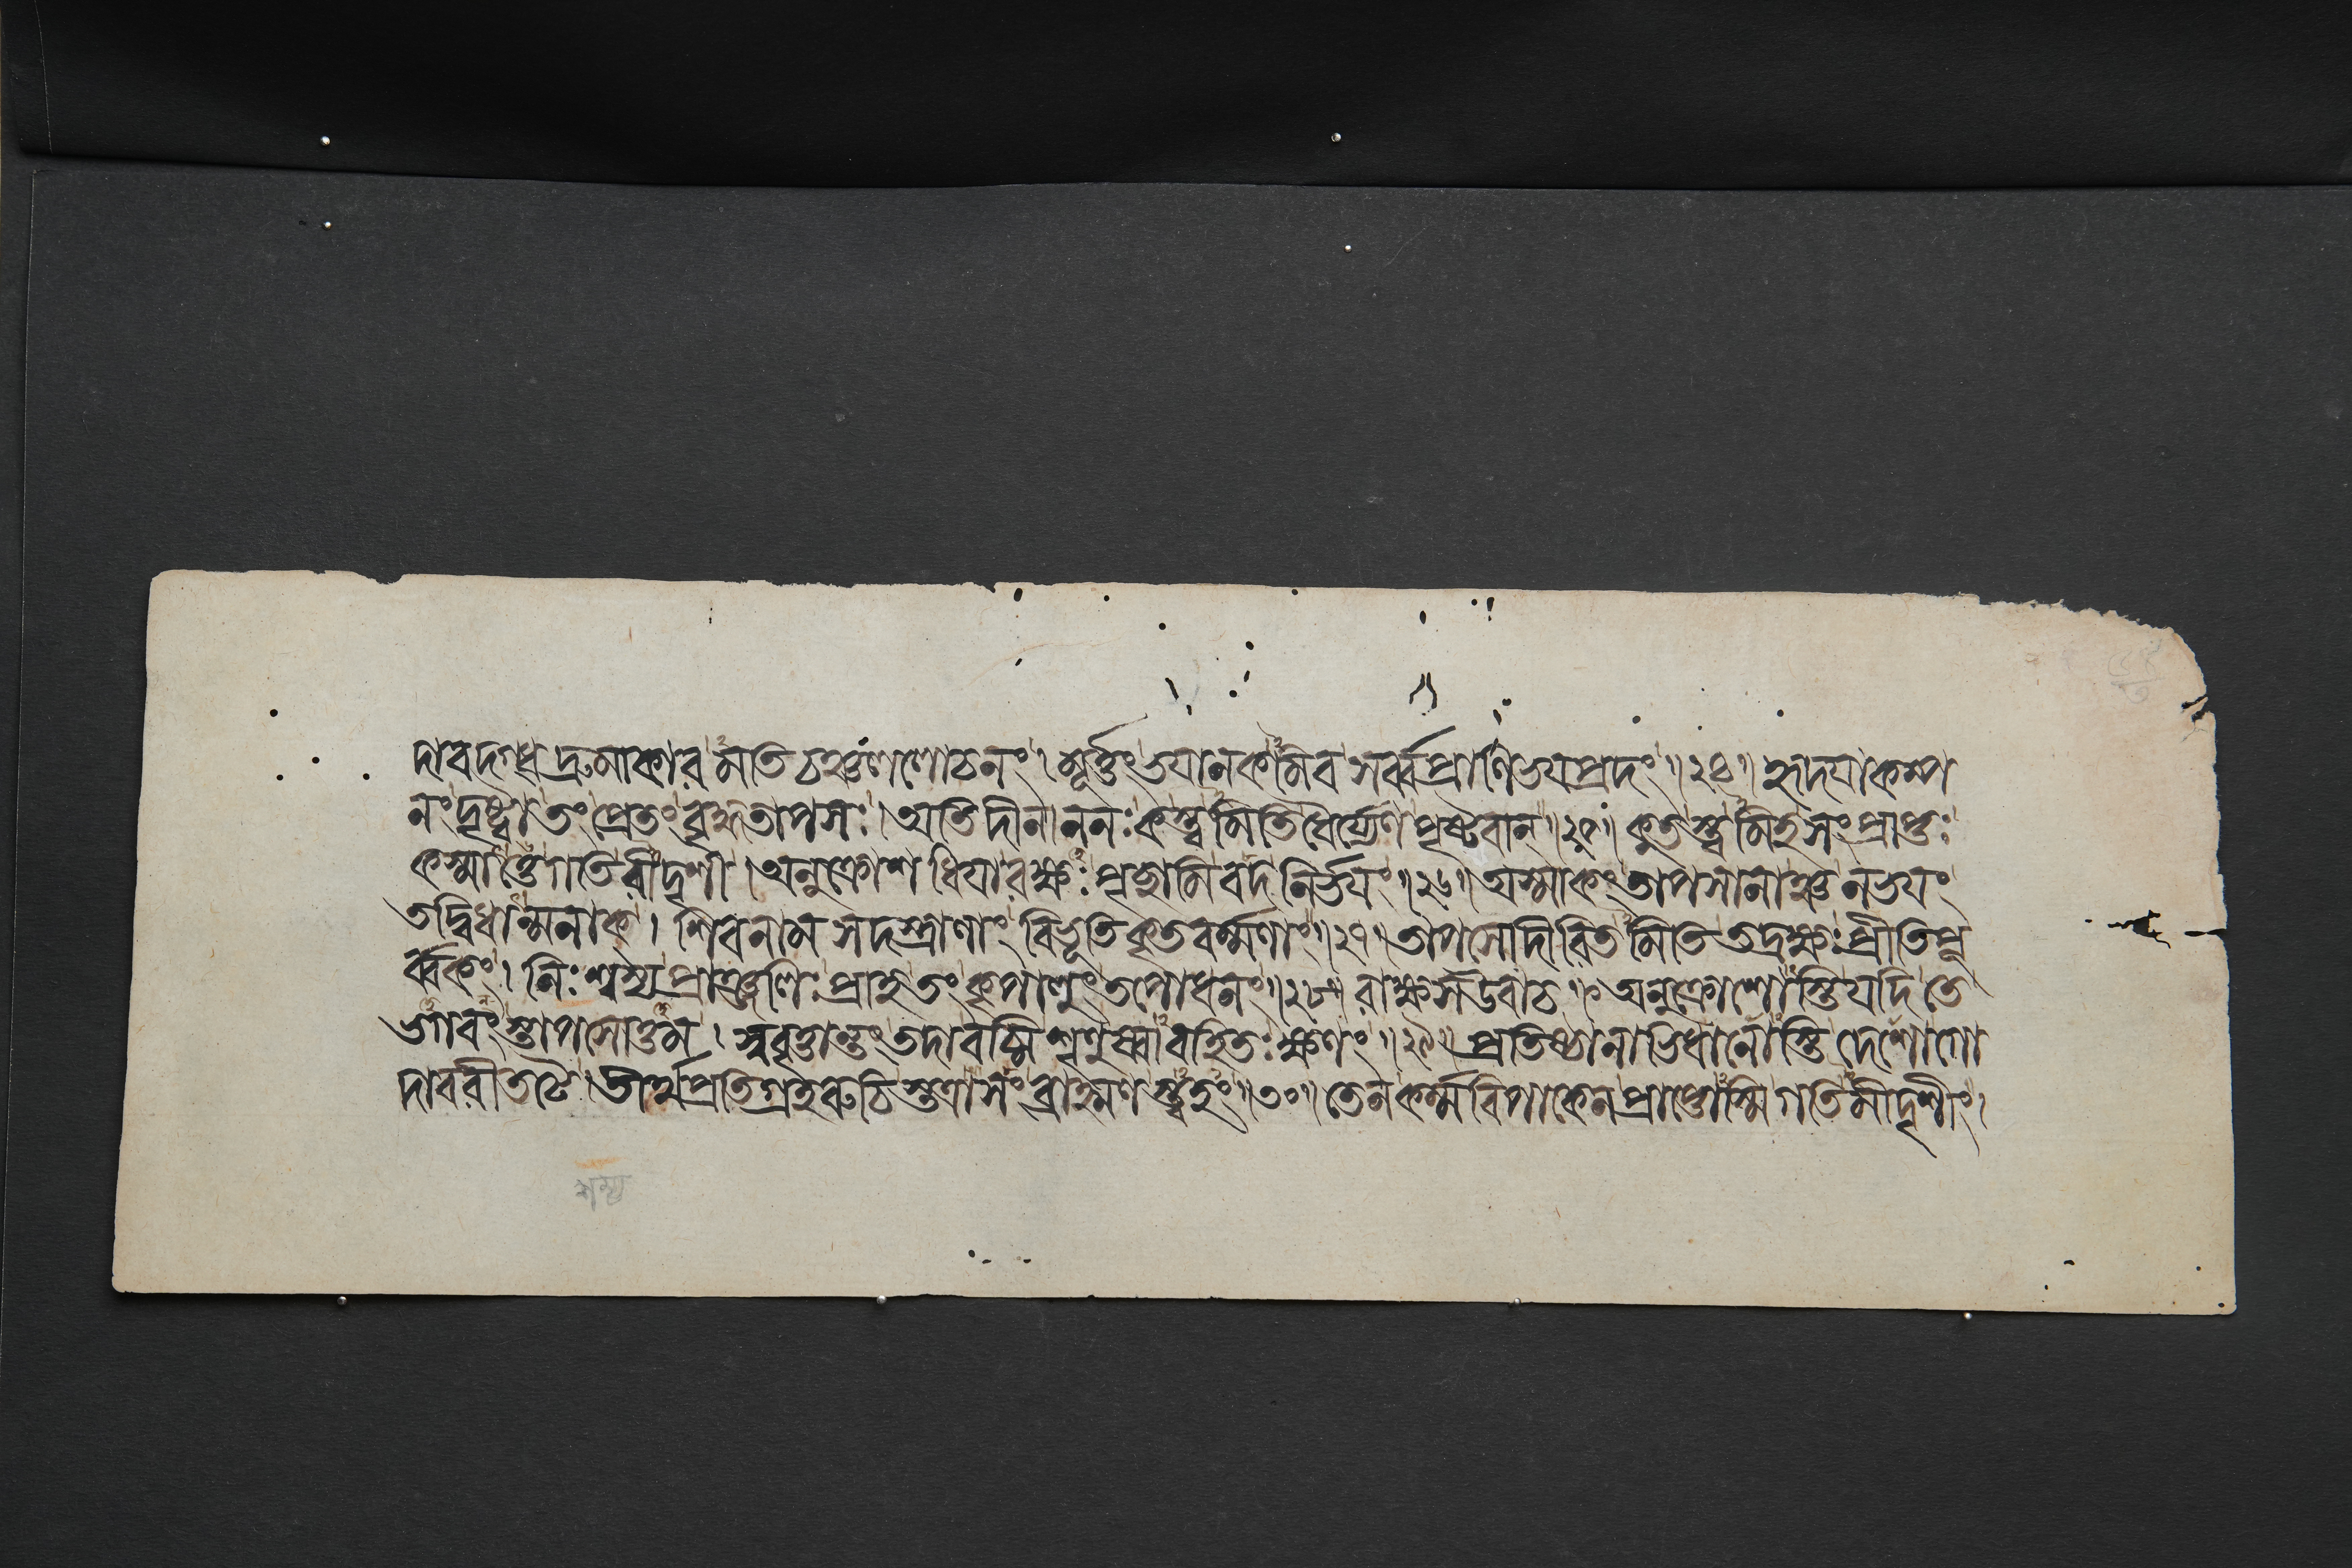 দাবদগ্ধদ্রুমাকারমতিচঞ্চললোচনং। মূর্ত্তংভয়ানকমিব সর্ব্বপ্রাণিভয়প্রদং॥২৪॥ হৃদয়াকম্প
নংদৃষ্ট্বা তং প্রেতং বৃদ্ধতাপসঃ। অতিদীনাননঃ কস্ত্বমিতি ধৈর্য্যেণ পৃষ্টবান্॥২৫॥ কুতস্ত্বমিহ সংপ্রাপ্তঃ
কস্মাত্তে গতিরীদৃশী। অনুক্রোশধিয়া রক্ষঃ পৃচ্ছামি বদ নির্ভয়ং॥২৬॥ অস্মাকং তাপসানাঞ্চ ন ভয়ং
ত্বদ্বিধান্মনাক্। শিবনামসহস্রাণাং বিভূতিকৃতবর্ম্মণাং॥২৭॥ তাপসোদীরিতমিতি তদ্রক্ষঃ প্রীতিপূ
র্ব্বকং। নিঃশম্য প্রাঞ্জলিঃ প্রাহ তং কৃপালুং তপোধনং॥২৮॥ রাক্ষস উবাচ॥ অনুক্রোশোস্তি যদি তে
ভগবংস্তাপসোত্তম। স্ববৃত্তান্তং তদা বচ্মি শৃণুষ্বাবহিতঃ ক্ষণং॥২৯॥ প্রতিষ্ঠানাভিধানোস্তি দেশো গো
দাবরীতটে। তীর্থপ্রতিগ্রহরুচিস্তত্রাসং ব্রাহ্মণস্ত্বহং॥৩০॥ তেন কর্ম্মবিপাকেন প্রাপ্তোস্মি গতিমীদৃশীং।